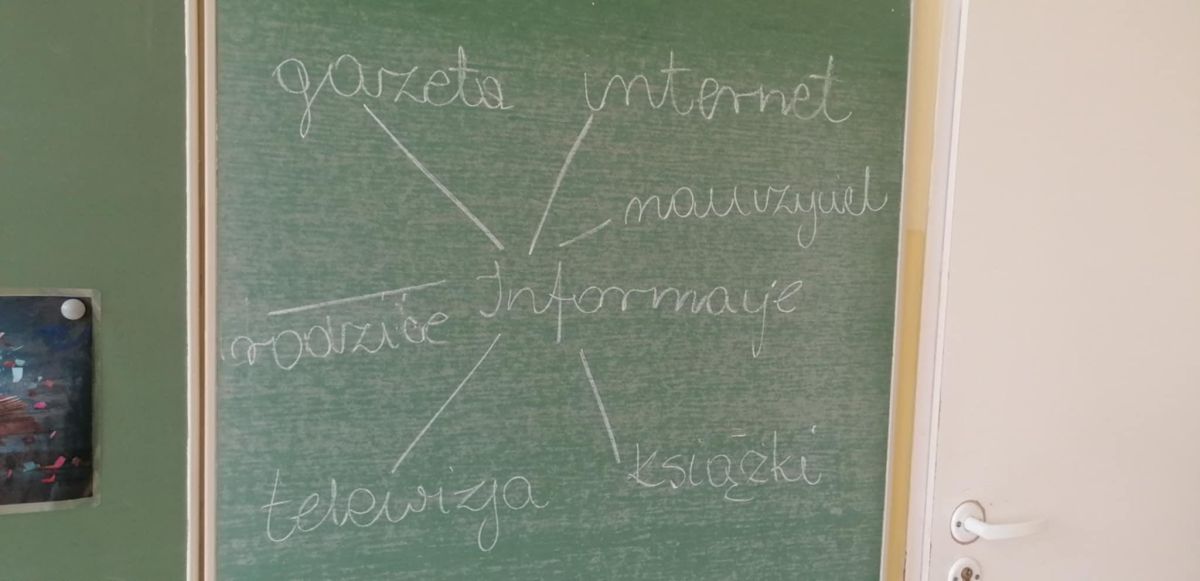 gazeta internet
nauczyciel
Informacje
rodzice
telewizja książki